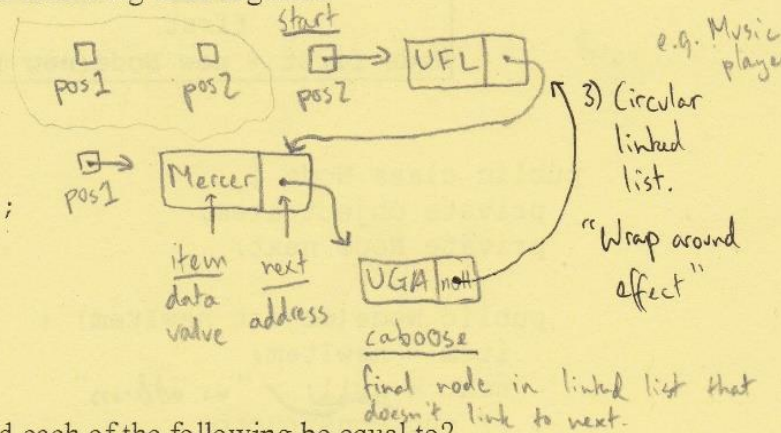 start
e.g. Music
player
pos1
pos2
pos2
UFL
3) Circular
linked
list.
"Wrap around
effect"
pos1
Mercer
;
item
data
value
next
address
UGA null
caboose
final node in linked list that
doesn't link to next.
each of the following be equal to?